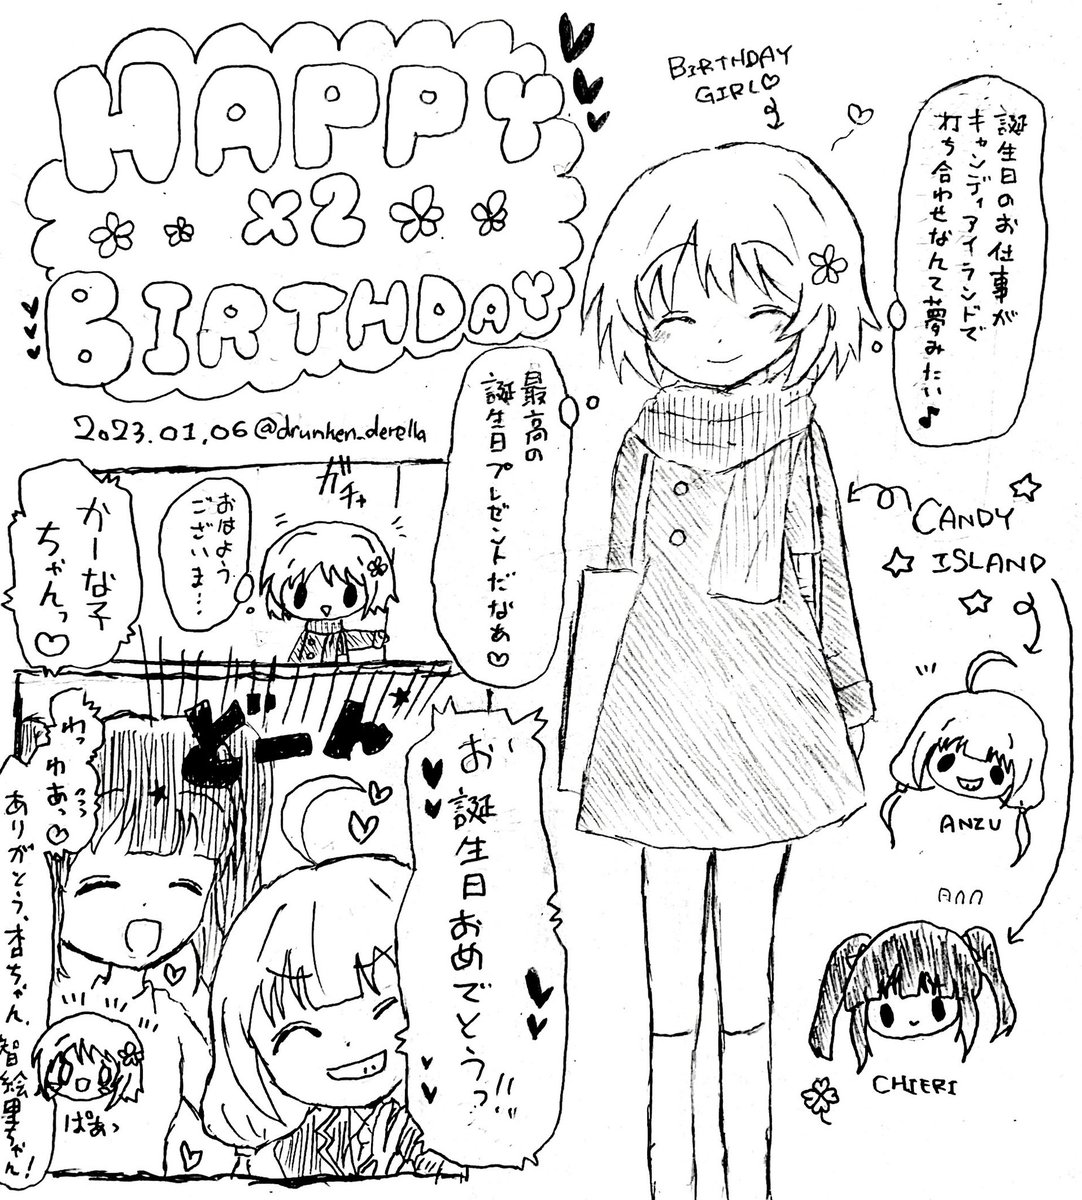 HAPPY
x2
BIRTHDAY
2023.01.06 @drunken_derella
BIRTHDAY
GIRL♡
誕生日のお仕事が
キャンディアイランドで
打ち合わせなんて夢みたい♪
最高の
誕生日プレゼントだなぁ♡
CANDY
ISLAND
ANZU
CHIERI
ガチャ
おはよう
ございま…
かーな子
ちゃんっ♡
どーん
お誕生日おめでとうっ!!
わっわあっ♡
ありがとう、杏ちゃん、智絵里ちゃん!
ぱあっ